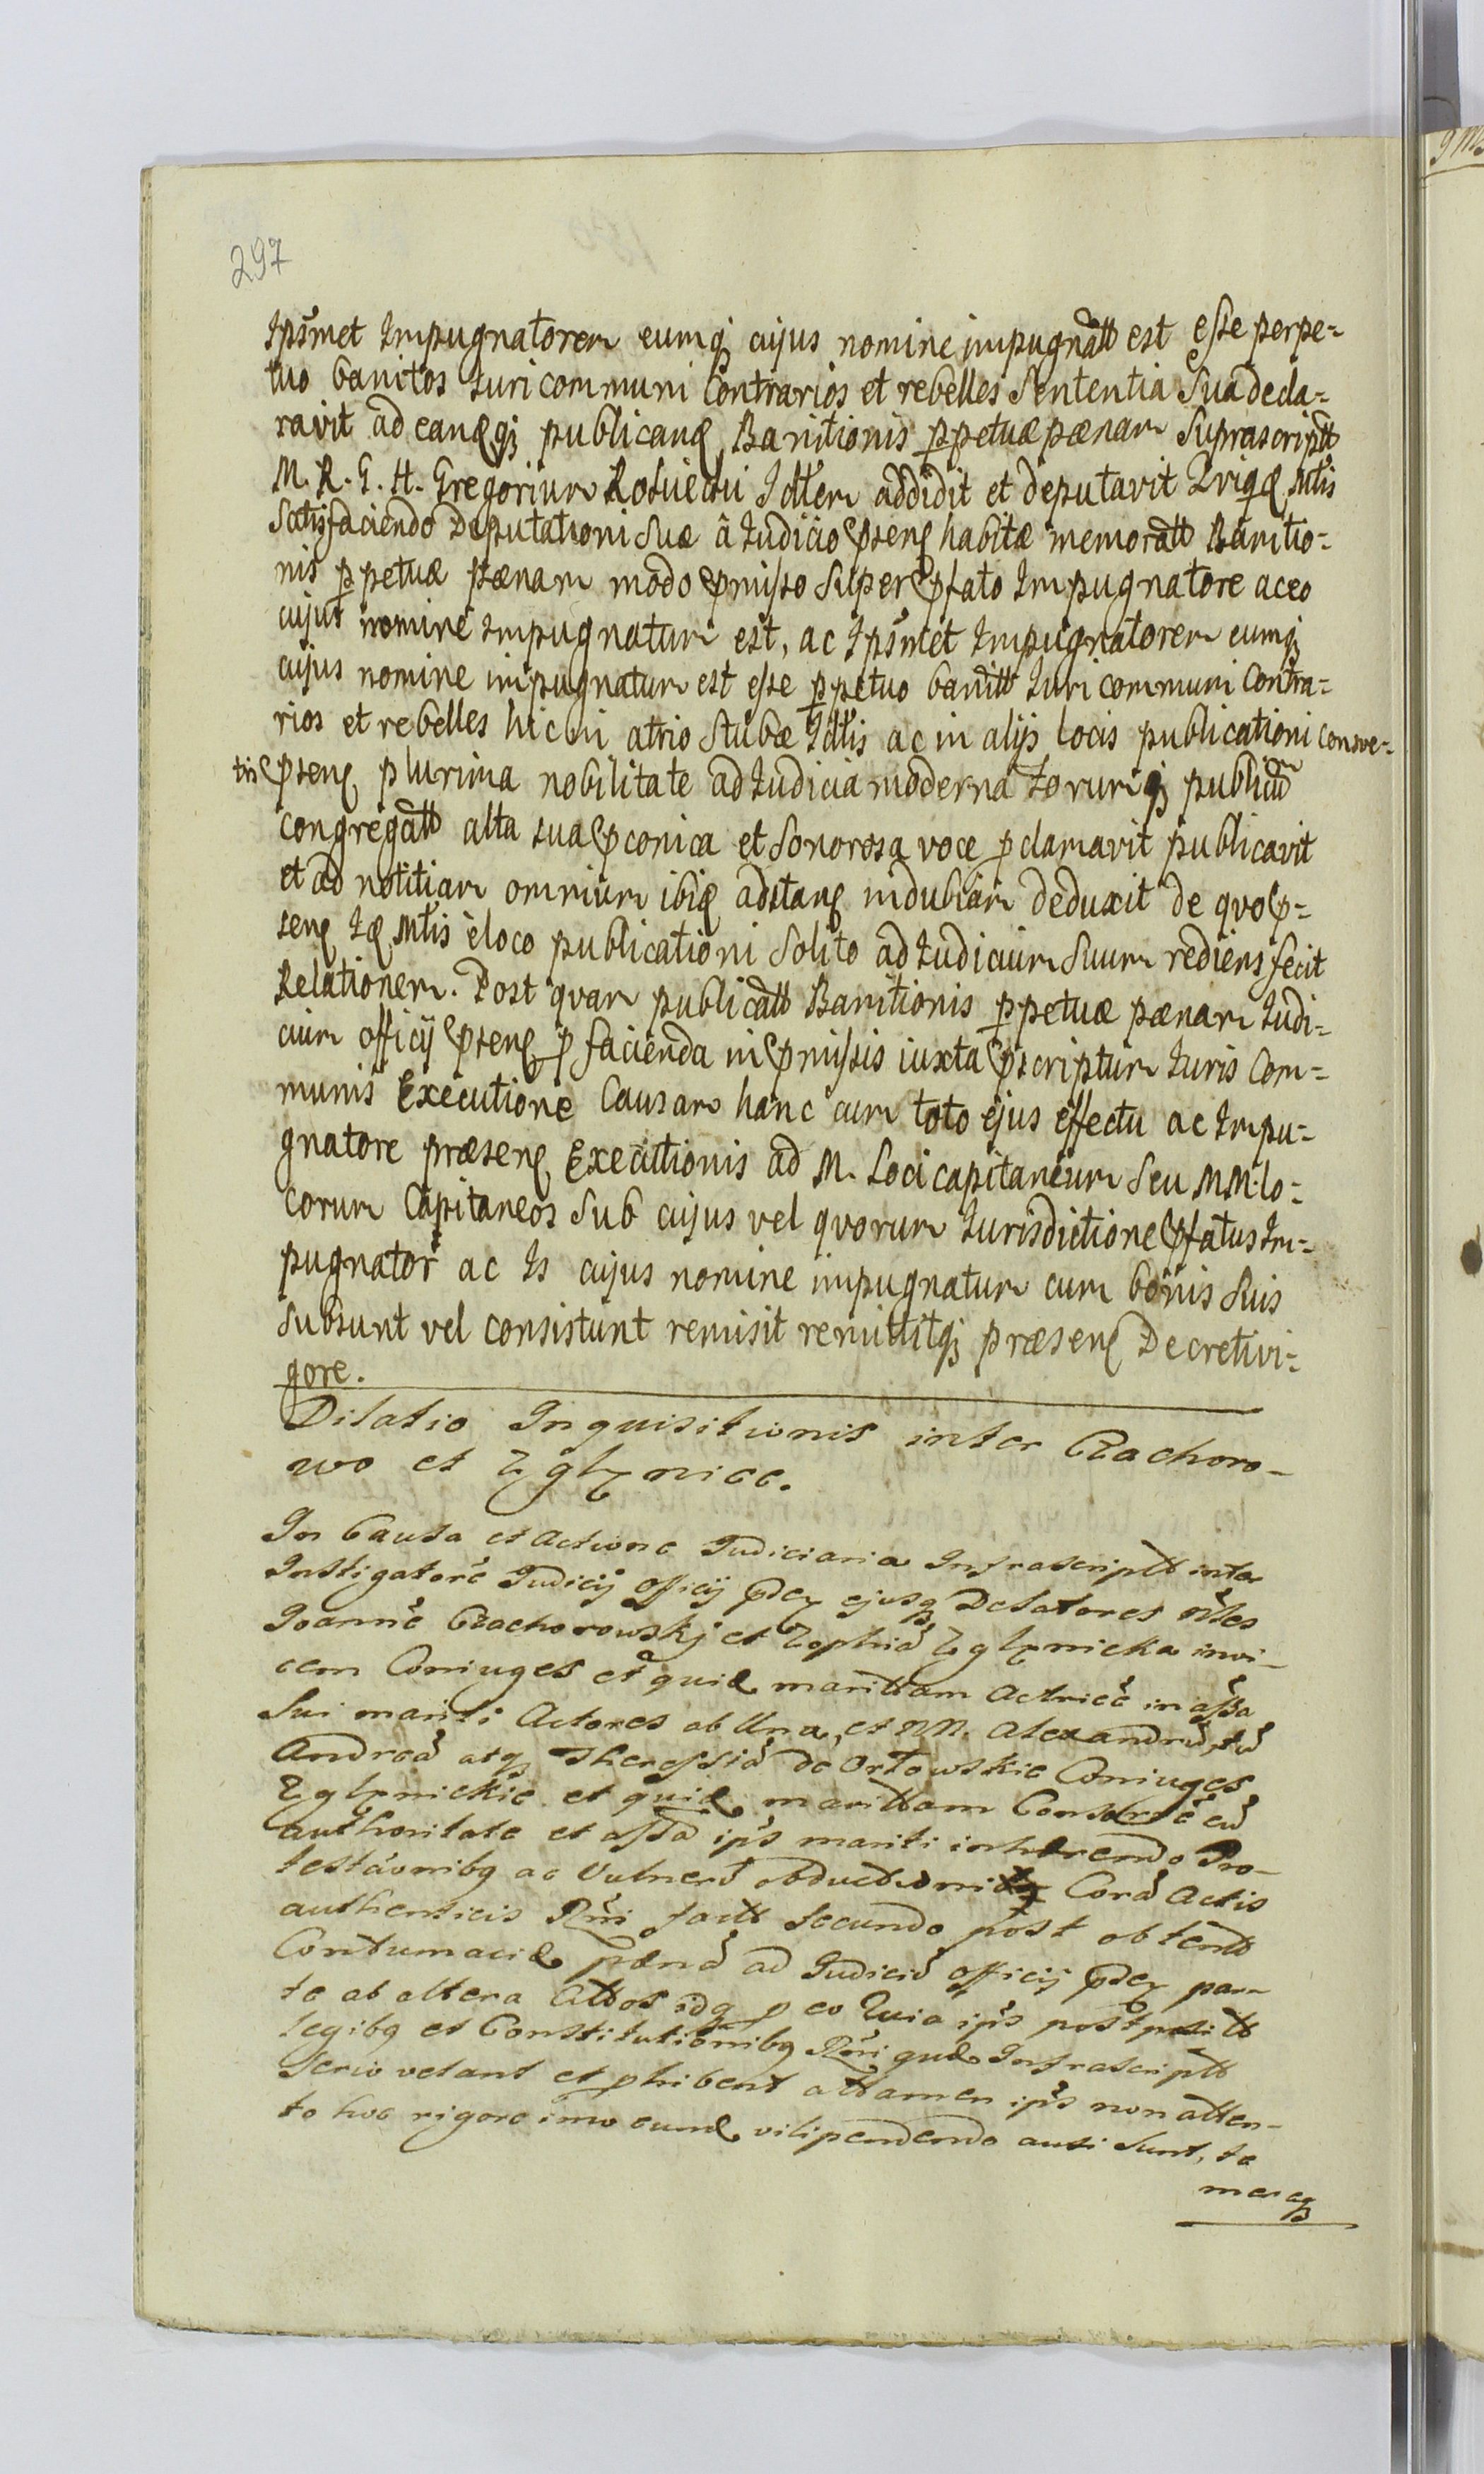 297
Ipsmet Impugnatorem eumq cujus nomine impugnatt est esse perpe=
tuo banitos Juri communi Contrarios et rebelles Sententia Sua decla=
ravit ad eandq publicand Banitionis ppetuæ pænam Suprascriptt
M. R. G. H. Gregorium Idlem addidit et deputavit Qviqd Mtis
Satisfaciendo Deputationi Suæ â Judicio psens habitæ memoratt Banitio=
nis ppetuæ pænam modo pmisso Super pfato Impugnatore ac eo
cujus nomine Impugnatum est, ac Ipsmet Impugnatorem eumq
cujus nomine impugnatum est esse ppetuo banitt Juri communi Contra=
rios et rebelles hic in atrio Stubæ Idlis ac in alijs locis publicationi consve=
tis psens plurima nobilitate ad Judicia moderna Forumq publicũ
congregatt alta sua pconica et Sonorosa voce pclamavit publicavit
et ad notitiam omnium ibid adstand indubiam deduxit de qvo p=
sens Id Mtis è loco publicationi Solito ad Judicium Suum rediens fecit
Relationem. Post qvam publicatt Banitionis ppetuæ pænam Judi=
cium officij psens p facienda in pmissis iuxta pscriptum Juris Com=
munis Executione Causam hanc cum toto ejus effectu ac Impu=
gnatore præsens Executionis ad M. Loci capitaneum Seu MM. lo=
corum Capitaneos Sub cujus vel qvorum Jurisdictione pfatus Im=
pugnator ac Is cujus nomine impugnatum cum bonis Suis
Subsunt vel consistunt remisit remittitq præsens Decreti vi=
gore.
Dilatio Inquisitionis inter Czachoro-
wo et Zglenice.
In Causa et Actione Judiciaria Infrascriptt inter
Instigatorẽ Judicij officij psen ejusq Delatores Nles
Joannẽ Czachorowskj et Zophiã Zglenicka invi-
cem Coniuges et quid marittam Actricẽ in assa
Sui mariti Actores ab Una, et NN. Alexandrũ, tũ
Andreã atq Theressiã de Orłowskie Coniuges
Zglenickie et quid marittam Consortẽ cũ
authoritate et assa ips mariti inhærendo Pro-
testãonibq ac Vulnerũ obductionibq Corã Actis
authenticis Rgni factt Secundo post obtentt
Contumaciæ pænã ad Judiciũ officij psen par-
te ab altera Cittos idq p eo Quia ips postpositt
legibq et Constitutionibq Rgni quæ Infrascriptt
Serio vetant et phibent attamen ips non atten-
to hoc rigore imo eund vilipendendo ausi Sunt, te
mereq